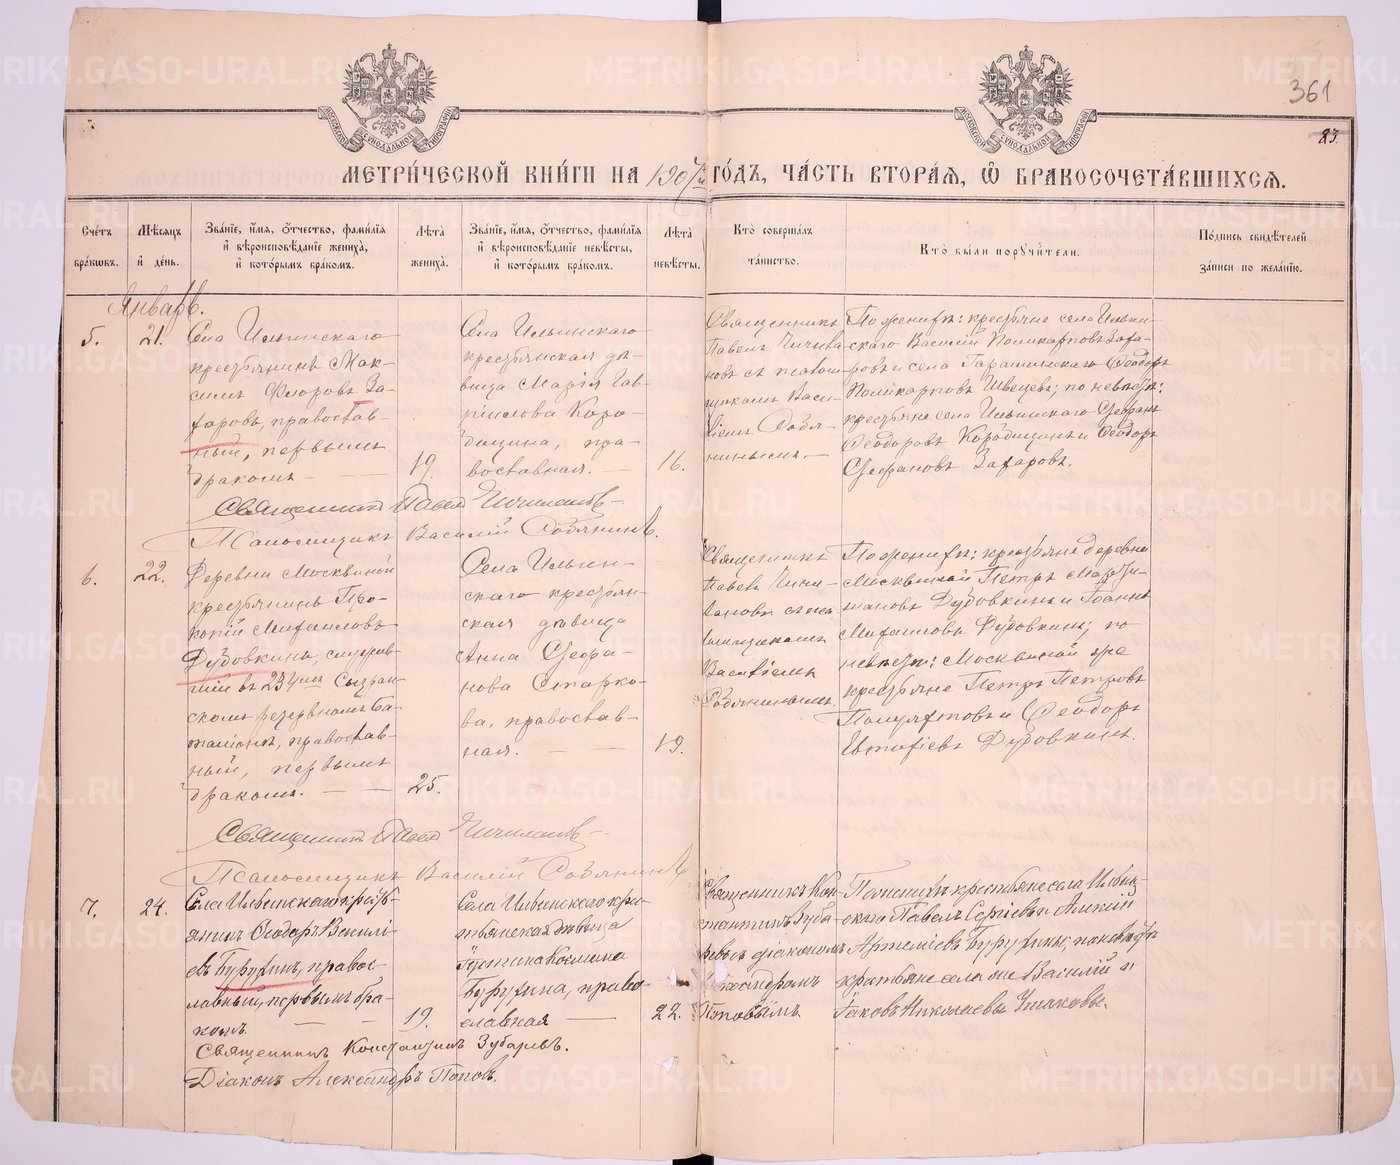 361
23.
МОСКОВСКОЙ СѴНОДАЛЬНОЙ ТИПОГРАФІИ
МОСКОВСКОЙ СѴНОДАЛЬНОЙ ТИПОГРАФІИ
МЕТРИ́ЧЕСКОЙ КНИ́ГИ НА 1907й ГО́ДЪ, ЧА́СТЬ ВТОРА́Ѧ, Ѽ БРАКОСОЧЕТА́ВШИХСѦ.
Сче́тъ
бра́ковъ.
Мѣ́сѧцъ
и҆ де́нь.
Зва́нїе, и҆́мѧ, ѻ҆́тчество, фами́лїѧ
и҆ вѣроисповѣ́данїе жениха̀,
и҆ кото́рымъ бра́комъ.
Лѣ́та
жениха̀.
Зва́нїе, и҆́мѧ, ѻ҆́тчество, фами́лїѧ
и҆ вѣроисповѣ́данїе невѣ́сты,
и҆ кото́рымъ бра́комъ.
Лѣ́та
невѣ́сты.
Кто̀ соверша́лъ
та́инство.
Кто̀ бы́ли порꙋчи́тели.
По́дпись свидѣ́телей
за́писи по жела́нїю.
Январь.
5.
21.
Села Ильинскаго
крестьянинъ Мак-
симъ Флоровъ За-
харовъ, православ-
ный, первымъ
бракомъ
19.
Села Ильинскаго
крестьянская дѣ-
вица Марія Гав-
ріилова Коро-
дищина, пра-
вославная.
16.
Священникъ
Павелъ Чичила-
новъ съ псалом-
щикомъ Васи-
ліемъ Собя-
нинымъ.
По женихѣ: крестьяне села Ильин-
скаго Василій Поликарповъ Заха-
ровъ и села Гарашинскаго Ѳеодоръ
Поликарповъ Швецовъ; по невѣстѣ:
крестьяне села Ильинскаго Стефанъ
Ѳеодоровъ Кородищинъ и Ѳеодоръ
Стефановъ Захаровъ.
Священникъ Павелъ Чичилановъ
Псаломщикъ Василій Собянинъ.
6.
22.
Деревни Москвиной
крестьянинъ Про-
копій Михаиловъ
Дубовкинъ, служив-
шій въ 234мъ Сызран-
скомъ резервномъ ба-
таліонѣ, православ-
ный, первымъ
бракомъ.
25.
Села Ильин-
скаго крестьян-
ская дѣвица
Анна Стефа-
нова Старко-
ва, православ-
ная.
19.
Священникъ
Павелъ Чичи-
лановъ съ пса-
ломщикомъ
Василіемъ
Собянинымъ.
По женихѣ: крестьяне деревни
Москвиной Петръ
Дубовкинъ и Іоаннъ
Михаиловъ Дубовкинъ; по
невѣстѣ: Москвиной же
крестьяне Петръ Петровъ
и Ѳеодоръ
Евтихіевъ Дубовкинъ.
Священникъ Павелъ Чичилановъ
Псаломщикъ Василій Собянинъ
7.
24.
Села Ильинскаго кресть-
янинъ Ѳеодоръ Василі-
евъ Бурухинъ, правос-
лавный, первымъ бра-
комъ
19.
Села Ильинскаго кре-
стьянская дѣвица
Іустина Космина
Бурухина, право-
славная
22.
Священникъ Кон-
стантинъ Зуба-
ревъ съ діакономъ
Александромъ
Поповымъ
По женихѣ крестьяне села Ильин-
скаго Павелъ Сергіевъ и Алексій
Артеміевъ Бурухины; по невѣстѣ
крестьяне села же Василій и
Іаковъ Николаевы Ушаковы.
Священникъ Константинъ Зубаревъ.
Діаконъ Александръ Поповъ.
METRIKI.GASO-URAL.RU